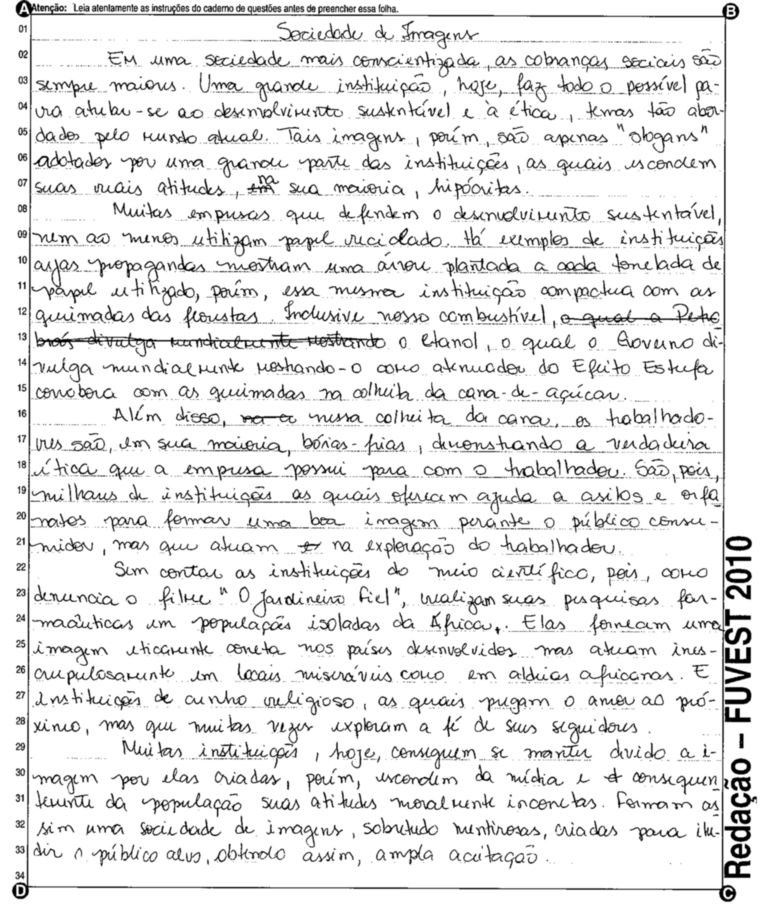 Atenção: Leia atentamente as instruções do caderno de questões antes de preencher essa folha.
A
B
01 Sociedade de Imagens
02 Em uma sociedade mais conscientizada, as cobranças sociais são
03 sempre maiores. Uma grande instituição, hoje, faz todo o possível pa-
04 ra atrelar-se ao desenvolvimento sustentável e à ética, temas tão abor-
05 dados pelo mundo atual. Tais imagens, porém, são apenas "slogans"
06 adotados por uma grande parte das instituições, as quais escondem
07 suas reais atitudes, em na sua maioria, hipócritas.
08 Muitas empresas que defendem o desenvolvimento sustentável,
09 nem ao menos utilizam papel reciclado. Há exemplos de instituições
10 cujas propagandas mostram uma árvore plantada a cada tonelada de
11 papel utilizado, porém, essa mesma instituição compactua com as
12 queimadas das florestas. Inclusive nosso combustível, o qual a Petro
13 brás divulga mundialmente mostrando o etanol, o qual o Governo di-
14 vulga mundialmente mostrando-o como atenuador do Efeito Estufa
15 corrobora com as queimadas na colheita da cana-de-açúcar.
16 Além disso, nessa colheita da cana, os trabalhado-
17 res são, em sua maioria, bóias-frias, demonstrando a verdadeira
18 ética que a empresa possui para com o trabalhador. São, pois,
19 milhares de instituições as quais oferecem ajuda a asilos e orfa
20 natos para formar uma boa imagem perante o público consu-
21 midor, mas que atuam na exploração do trabalhador.
22 Sem contar as instituições do meio científico, pois, como
23 denuncia o filme "O Jardineiro Fiel", realizam suas pesquisas far-
24 macêuticas em populações isoladas da África. Elas fornecem uma
25 imagem eticamente correta nos países desenvolvidos mas atuam ines-
26 crupulosamente em locais miseráveis como em aldeias africanas. E
27 instituições de cunho religioso, as quais pregam o amor ao pró-
28 ximo, mas que muitas vezes exploram a fé de seus seguidores.
29 Muitas instituições, hoje, conseguem se manter devido a i-
30 magem por elas criadas, porém, escondem da mídia e consequen
31 temente da população suas atitudes moralmente incorretas. Formam as
32 sim uma sociedade de imagens, sobretudo mentirosas, criadas para ilu-
33 dir o público alvo, obtendo assim, ampla aceitação.
34
D
C
Redação – FUVEST 2010